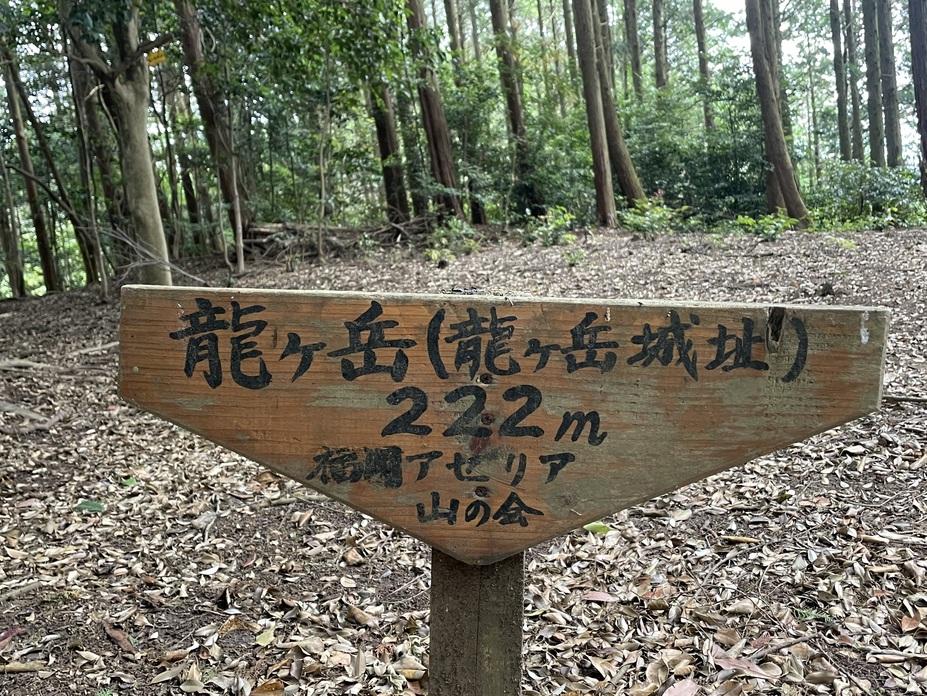 龍ヶ岳(龍ヶ岳城址)
222m
福岡アゼリア
山の会